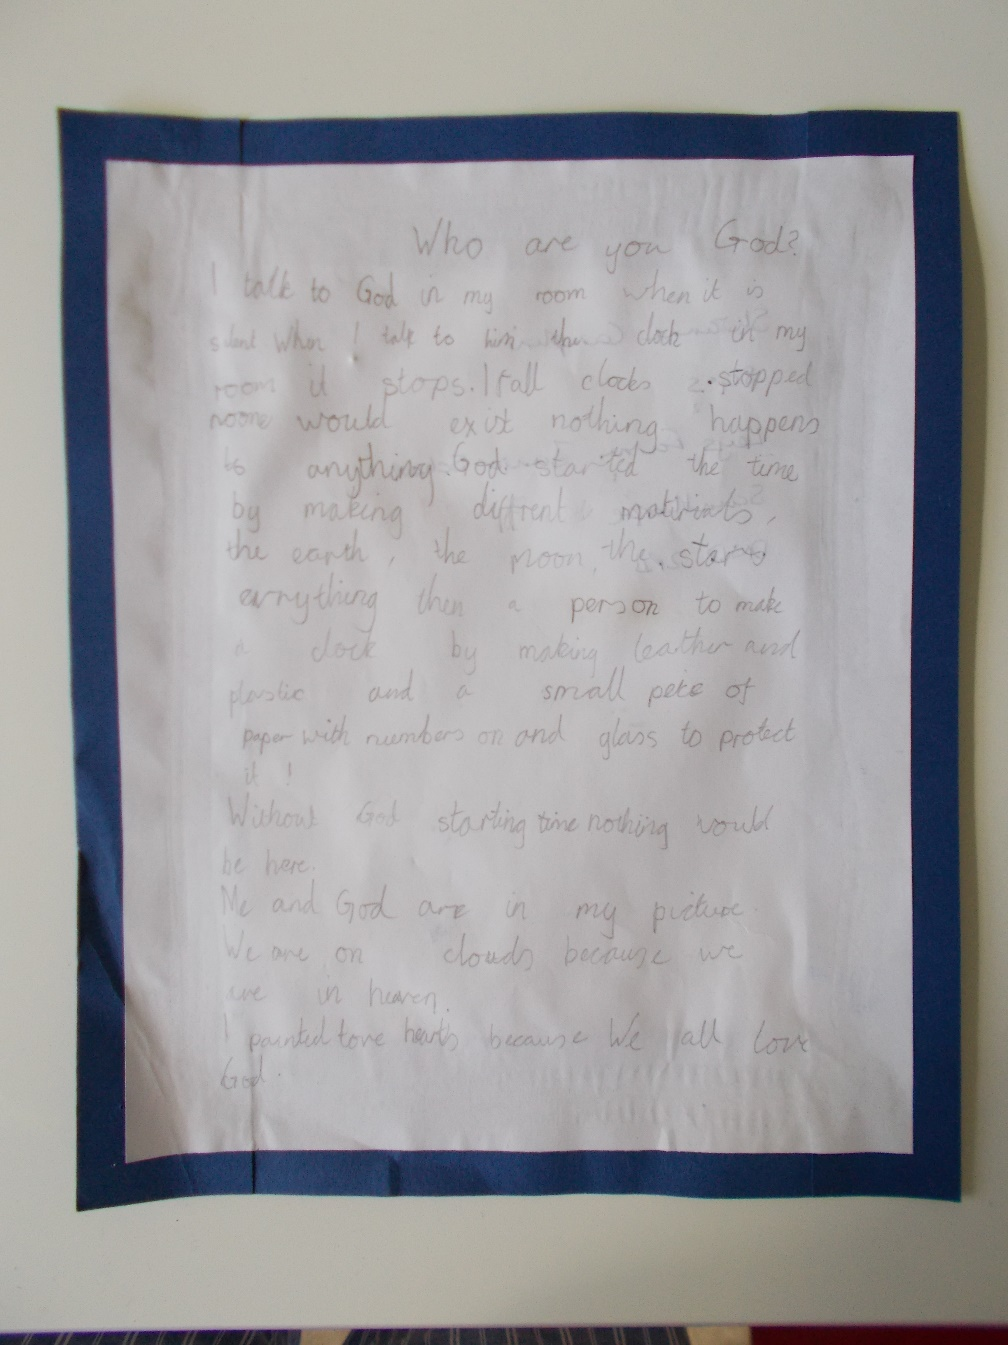 Who are you God?
I talk to God in my room when it is
silent When I talk to him the clock in my
room it stops. If all clocks stopped
noone would exist nothing happens
to anything. God started the time
by making diffrent matiriats,
the earth, the moon, the stars
evrything then a person to make
a clock by making leather and
plastic and a small peice of
paper with numbers on and glass to protect
it !
Without God starting time nothing would
be here.
Me and God are in my picture.
We are on clouds because we
are in heaven.
I painted love hearts because We all love
God.